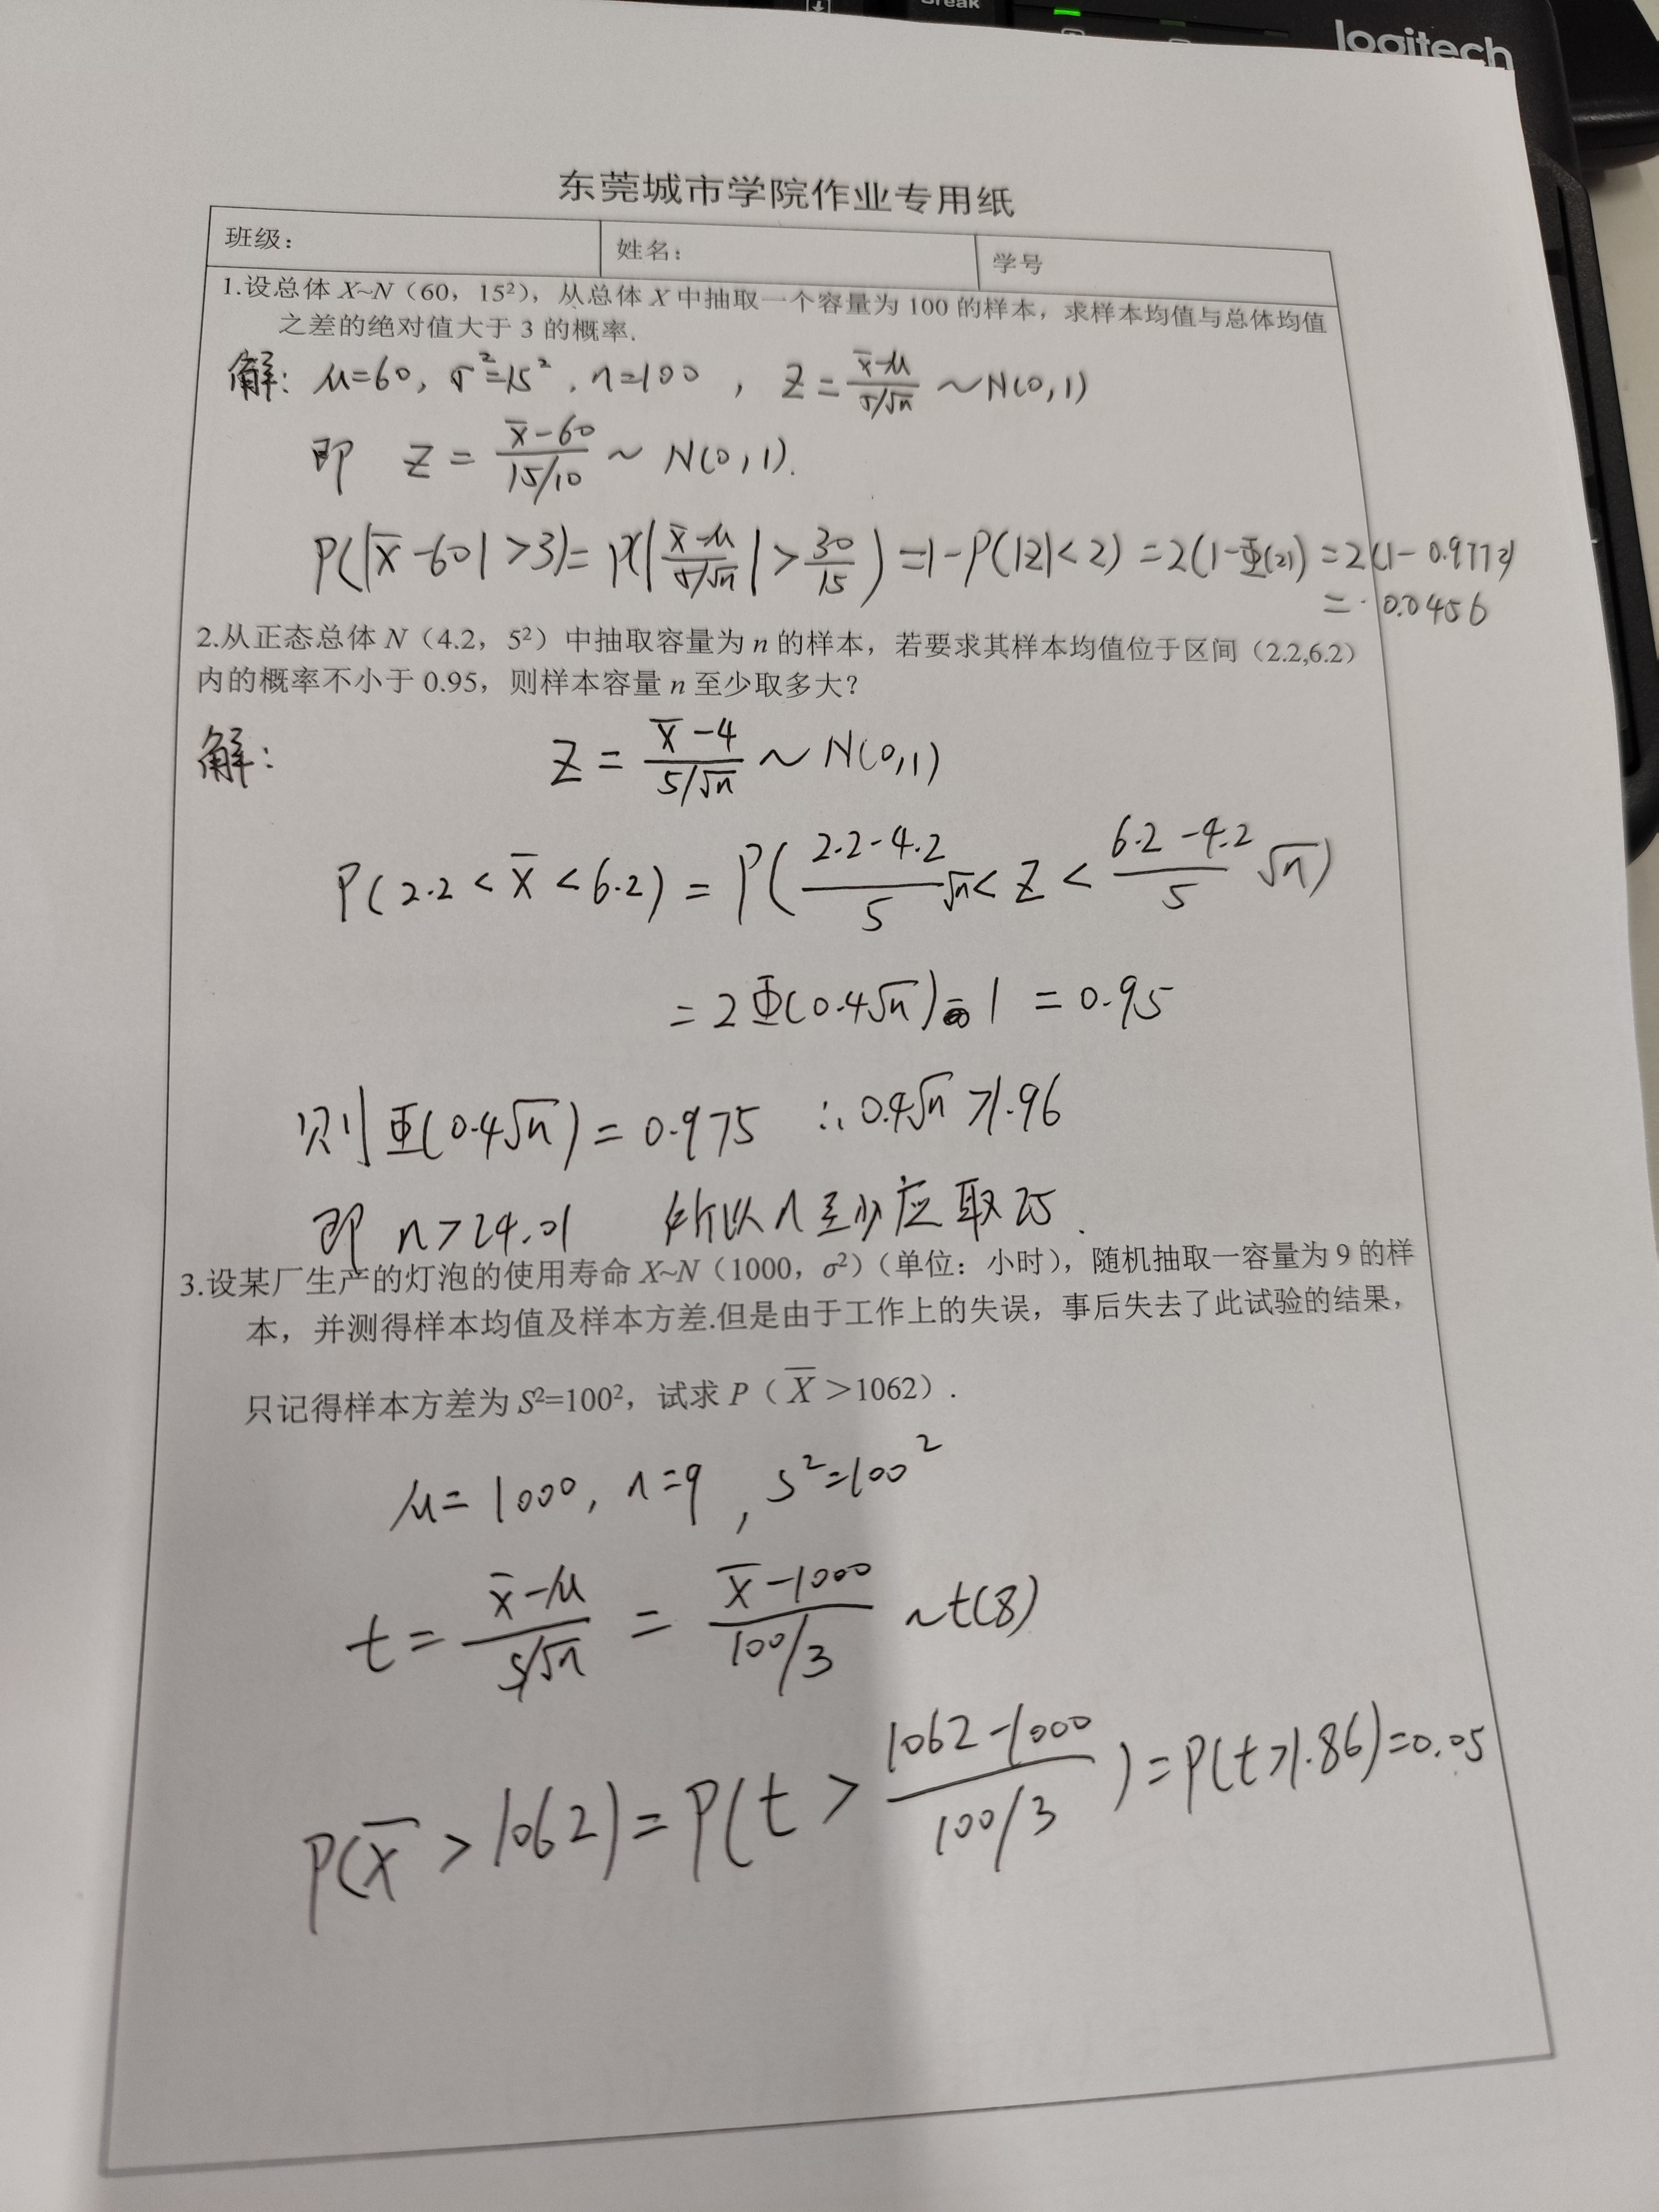 Break
logitech
东莞城市学院作业专用纸
班级：
姓名：
学号
1.设总体 X~N（60，15²），从总体 X 中抽取一个容量为 100 的样本，求样本均值与总体均值
之差的绝对值大于 3 的概率.
解: μ=60, σ²=15², n=100, Z = (x̄-μ)/(σ/√n) ~N(0,1)
即 Z = (x̄-60)/(15/10) ~ N(0,1).
P(|x̄-60|>3)= P(|(x̄-μ)/(σ/√n)| > 30/15) =1-P(|Z|<2) =2(1-Φ(2)) =2(1-0.9772)
= 0.0456
2.从正态总体 N（4.2，5²）中抽取容量为 n 的样本，若要求其样本均值位于区间（2.2,6.2）
内的概率不小于 0.95，则样本容量 n 至少取多大？
解: Z = (x̄-4)/(5/√n) ~ N(0,1)
P(2.2 < x̄ < 6.2) = P( (2.2-4.2)/5 √n < Z < (6.2-4.2)/5 √n )
= 2Φ(0.4√n) - 1 = 0.95
则 Φ(0.4√n) = 0.975 ∴ 0.4√n >1.96
即 n > 24.01 所以 n 至少应取 25.
3.设某厂生产的灯泡的使用寿命 X~N（1000，σ²）（单位：小时），随机抽取一容量为 9 的样
本，并测得样本均值及样本方差.但是由于工作上的失误，事后失去了此试验的结果，
只记得样本方差为 S²=100²，试求 P（X̄ >1062）.
μ= 1000, n=9, s²=100²
t = (x̄-μ)/(s/√n) = (x̄-1000)/(100/3) ~t(8)
P(x̄ > 1062) = P( t > (1062-1000)/(100/3) ) = P(t>1.86)=0.05